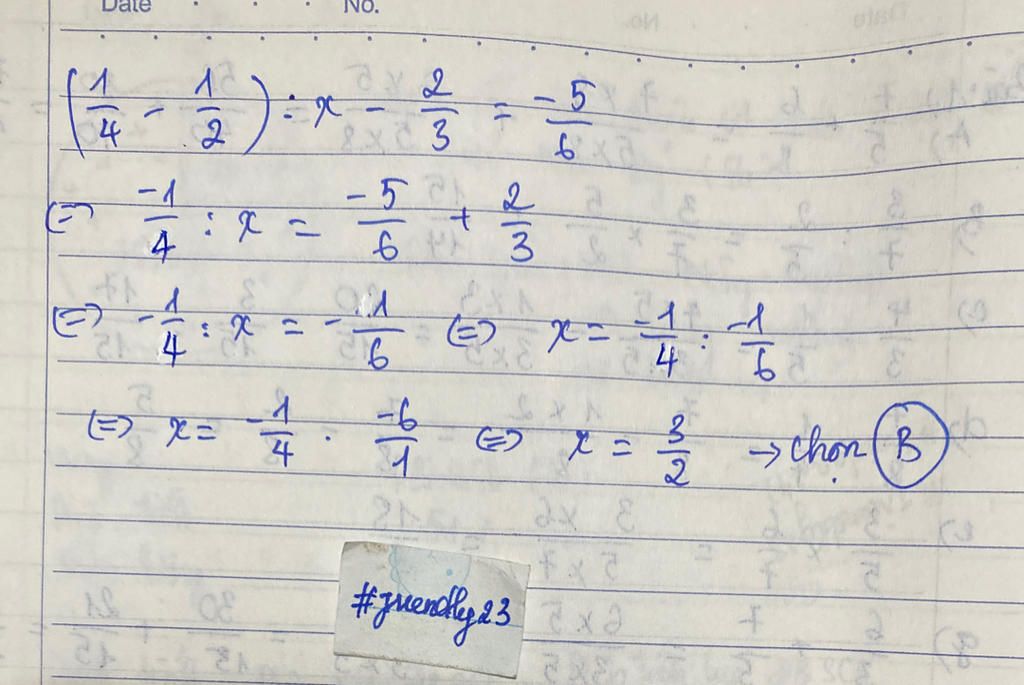 Date No.
(1/4 - 1/2) : x - 2/3 = -5/6
(=) -1/4 : x = -5/6 + 2/3
(=) -1/4 : x = -1/6 (=) x = -1/4 : -1/6
(=) x = -1/4 . -6/1 (=) x = 3/2 → chọn B